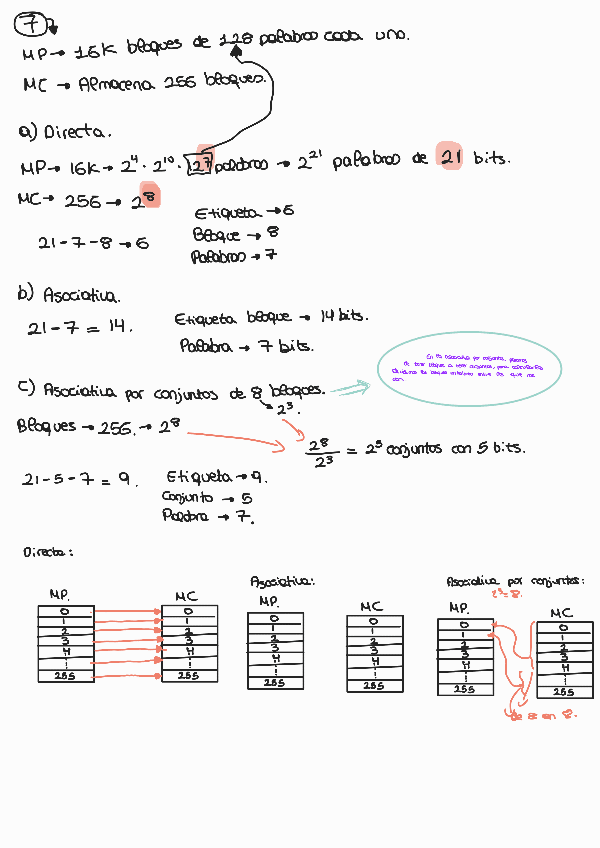 7
MP → 16K bloques de 128 palabras cada uno.
MC → Almacena 256 bloques.
a) Directa.
MP → 16K → 2⁴ · 2¹⁰ · 2⁷ palabras → 2²¹ palabras de 21 bits.
MC → 256 → 2⁸
21 - 7 - 8 → 6
Etiqueta → 6
Bloque → 8
Palabras → 7
b) Asociativa.
21 - 7 = 14.
Etiqueta bloque → 14 bits.
Palabra → 7 bits.
En la asociativa por conjuntos,
de
c) Asociativa por conjuntos de 8 bloques.
2³.
Bloques → 256 → 2⁸
2⁸/2³ = 2⁵ conjuntos con 5 bits.
21 - 5 - 7 = 9.
Etiqueta → 9.
Conjunto → 5
Palabra → 7.
Directa:
MP.
MC
0 0
1 1
2 2
3 3
4 4
⋮ ⋮
255 255
Asociativa:
MP.
MC
0 0
1 1
2 2
3 3
4 4
⋮ ⋮
255 255
Asociativa por conjuntos:
2³=8.
MP.
MC
0 0
1 1
2 2
3 3
4 4
⋮ ⋮
255 255
de 8 en 8.